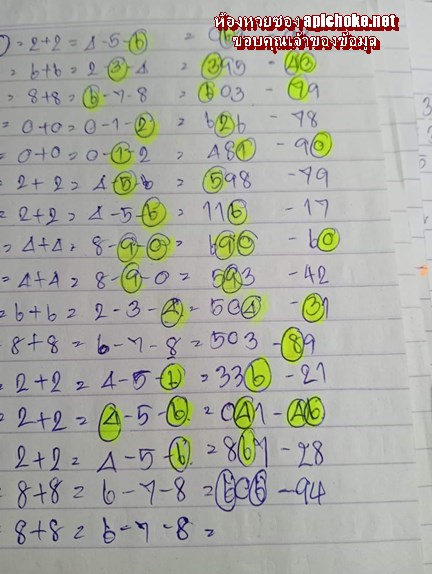 ห้องหวยซอง apichoke.net
ขอบคุณเจ้าของข้อมูล
) = 2+2 = 4-5-6 =
= 6+6 = 2 3-4 = 395 - 43
= 8+8 = 6-7-8 = 603 - 79
= 0+0 = 0-1-2 = 626 - 78
= 0+0 = 0-1-2 = 481 - 90
= 2+2 = 4-5-6 = 598 - 79
= 2+2 = 4-5-6 = 116 - 17
= 4+4 = 8-9-0 = 690 - 60
= 4+4 = 8-9-0 = 593 - 42
= 6+6 = 2-3-4 = 504 - 31
8+8 = 6-7-8 = 503 - 89
= 2+2 = 4-5-6 = 336 - 21
= 2+2 = 4-5-6 = 041 - 46
2+2 = 4-5-6 = 867 - 28
= 8+8 = 6-7-8 = 605 - 94
= 8+8 = 6-7-8 =